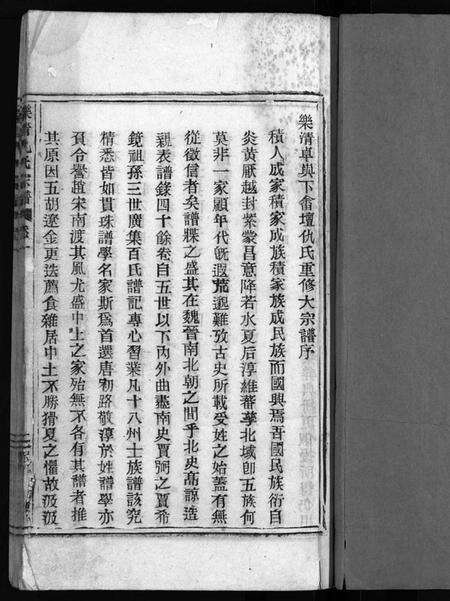 樂清卓與下畬壇仇氏重修大宗譜序
積人成家積家成族積家族成民族而國興焉吾國民族衍自
炎黃厥越封紫蒙昌意降若水夏后淳維蕃孳北域卽五族何
莫非一家顧年代旣遐荒邈難攷古史所載受姓之始蓋有無
從徵信者矣譜牒之盛其在魏晉南北朝之間乎北史高諒造
親表譜錄四十餘卷自五世以下內外曲盡南史賈弼之賈希
鏡祖孫三世廣集百氏譜記專心習業凡十八州士族譜該究
精悉皆如貫珠譜學名家斯爲首選唐初路敬淳於姓譜學亦
頁令譽趙宋南渡其風尤盛中土之家殆無不各有其譜者推
其原因五胡遼金更迭薦食雜居中土不勝猾夏之懼故汲汲
樂清